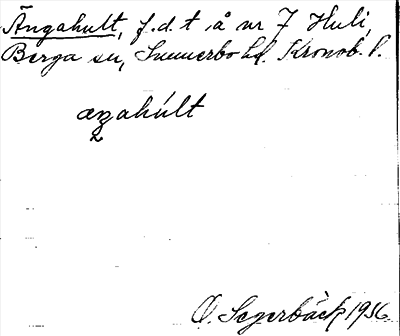 Ängahult, f.d. t å nr 7 Huli,
Berga sn, Sunnerbo hd. Kronob. l.
æŋahúlt
O. Segerbäck 1936.